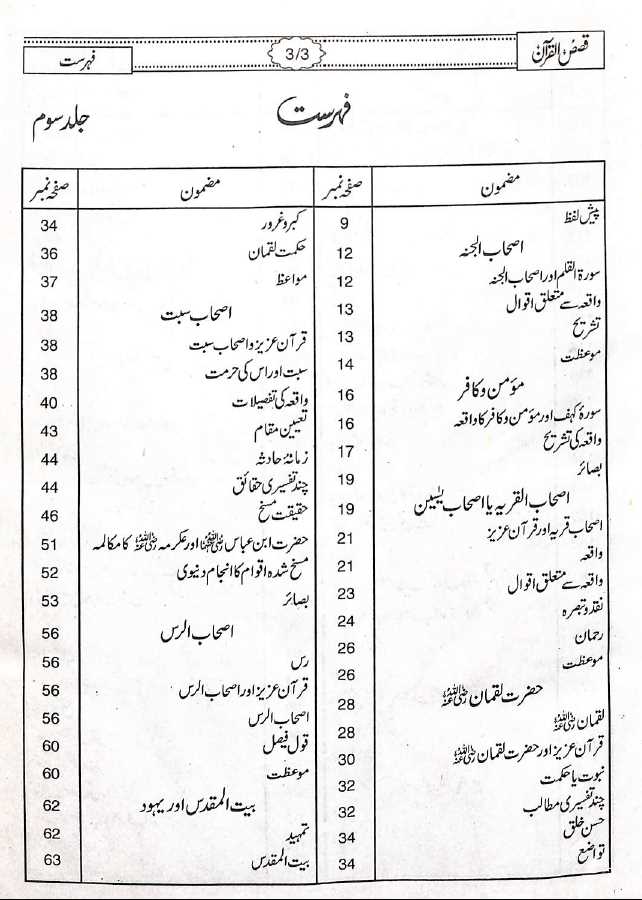 قصص القرآن
3/3
فہرست
فہرست
جلد سوم
مضمون صفحہ نمبر
پیش لفظ 9
اصحاب الجنہ 12
سورۃ القلم اور اصحاب الجنہ 12
واقعہ سے متعلق اقوال 13
تشریح 13
موعظت 14
مؤمن و کافر 16
سورۂ کہف اور مؤمن و کافر کا واقعہ 16
واقعہ کی تشریح 17
بصائر 19
اصحاب القریہ یا اصحاب یٰسین 19
اصحاب قریہ اور قرآن عزیز 21
واقعہ 21
واقعہ سے متعلق اقوال 23
نقد و تبصرہ 24
رحمان 26
موعظت 26
حضرت لقمان رضی اللہ عنہ 28
لقمان رضی اللہ عنہ 28
قرآن عزیز اور حضرت لقمان رضی اللہ عنہ 30
نبوت یا حکمت 32
چند تفسیری مطالب 32
حسن خلق 34
تواضع 34
مضمون صفحہ نمبر
کبر و غرور 34
حکمت لقمان 36
مواعظ 37
اصحاب سبت 38
قرآن عزیز و اصحاب سبت 38
سبت اور اس کی حرمت 38
واقعہ کی تفصیلات 40
تعیین مقام 43
زمانۂ حادثہ 44
چند تفسیری حقائق 44
حقیقت مسخ 46
حضرت ابن عباس رضی اللہ عنہما اور عکرمہ رضی اللہ عنہ کا مکالمہ 51
مسخ شدہ اقوام کا انجام دنیوی 52
بصائر 53
اصحاب الرس 56
رس 56
قرآن عزیز اور اصحاب الرس 56
اصحاب الرس 56
قول فیصل 60
موعظت 60
بیت المقدس اور یہود 62
تمہید 62
بیت المقدس 63